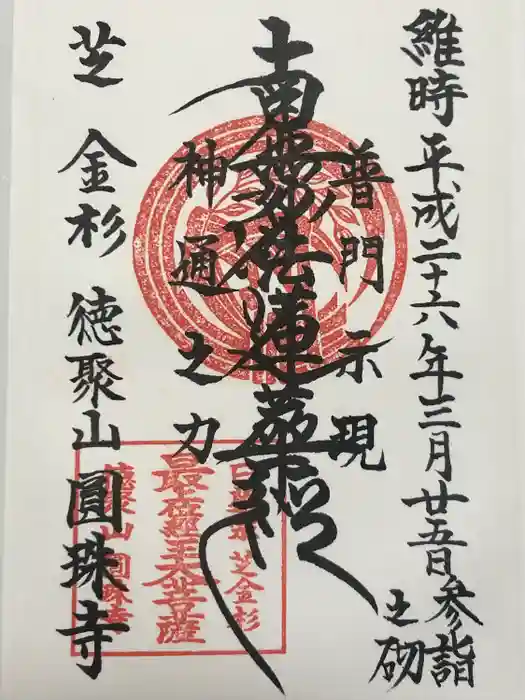 維時平成二十六年三月廿五日参詣
之砌
普門示現
南無妙法蓮華経
神通之力
芝金杉 徳聚山圓珠寺
日蓮宗 芝金杉
最上位経王大菩薩
徳聚山圓珠寺